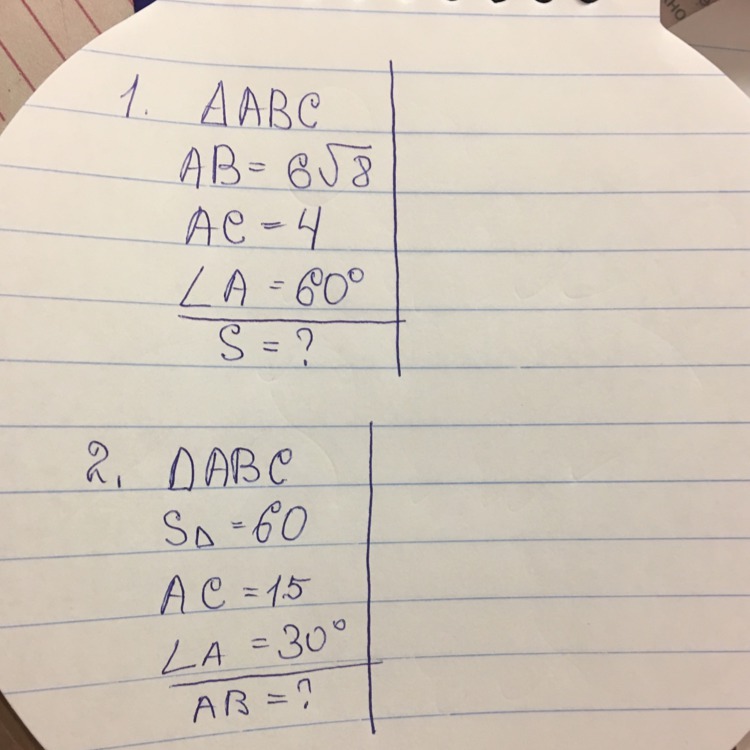 1. ΔABC
AB = 6√8
AC = 4
∠A = 60°
S = ?
2. ΔABC
S△ = 60
AC = 15
∠A = 30°
AB = ?